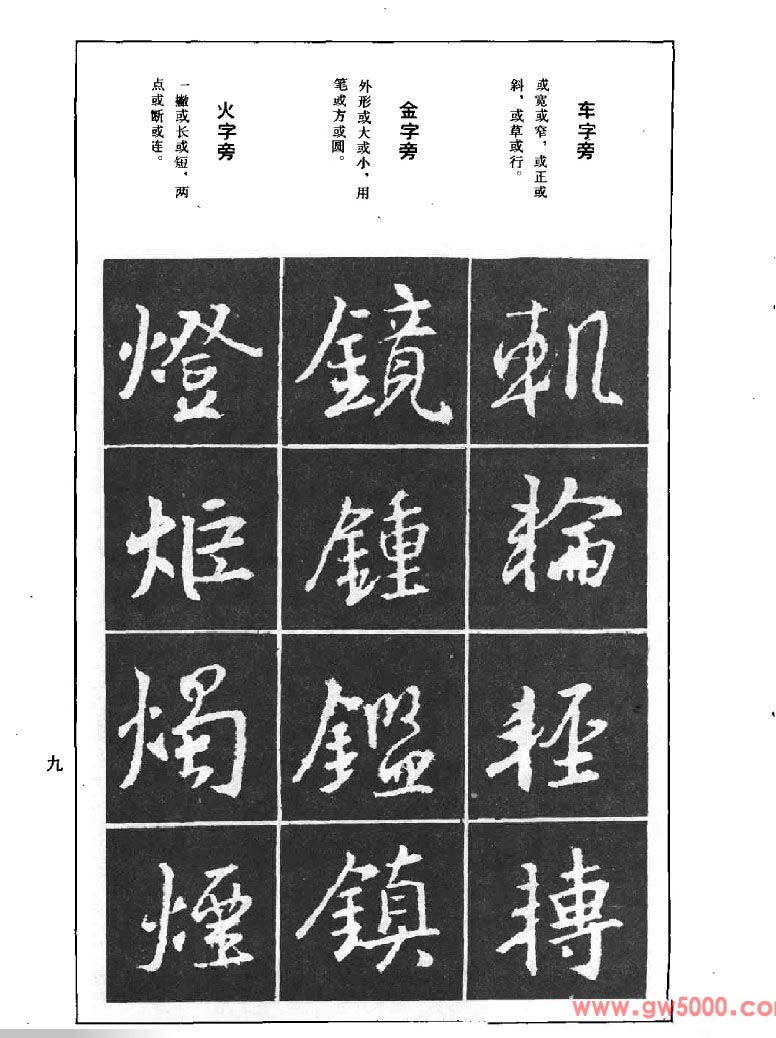 车字旁
或宽或窄，或正或
斜，或草或行。
軌
輪
輕
轉
金字旁
外形或大或小，用
笔或方或圆。
鏡
鍾
鑑
鎮
火字旁
一撇或长或短，两
点或断或连。
燈
炬
燭
煙
九
www.gw5000.com